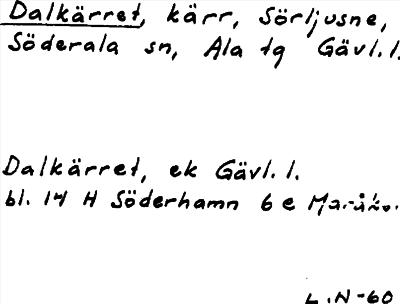 Dalkärret, kärr, Sörljusne,
Söderala sn, Ala tg Gävl.l.
Dalkärret, ek Gävl.l.
bl. 14 H Söderhamn 6 e
L.N-60